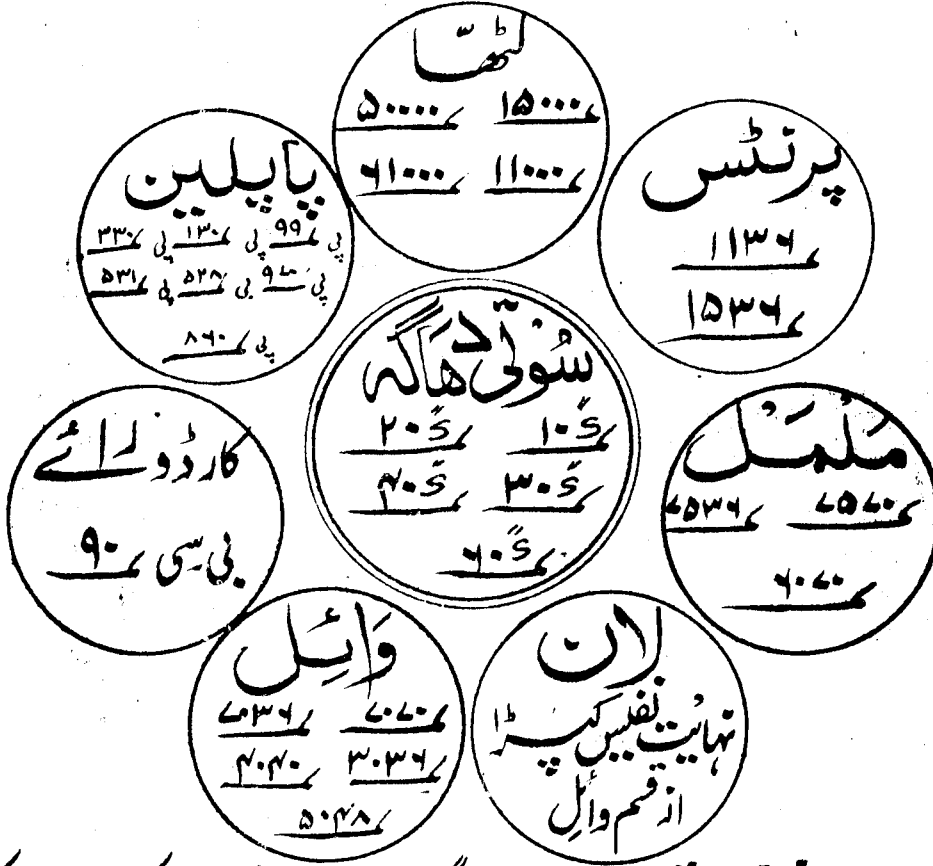 لٹھّا
؁۱۵۰۰۰ ؁۵۰۰۰۰
؁۱۱۰۰۰ ؁۶۱۰۰۰
پرنٹس
؁۱۱۳۶
؁۱۵۳۶
پاپلین
پی ؁۹۹ پی ؁۱۳۰ پی ؁۳۳۰
پی پی ؁۵۲۸ پی ؁۵۳۱
پی ؁۸۶۰
سُوتی دھاگہ
؁۱۰s ؁۲۰s
؁۳۰s ؁۴۰s
؁۶۰s
مَلمَل
کارڈورائے
بی سی ؁۹۰
وَائِل
؁۳۰۳۶ ؁۴۰۴۰
؁۵۰۴۸
لان
نہایت نفیس کپڑا
از قسم وائل